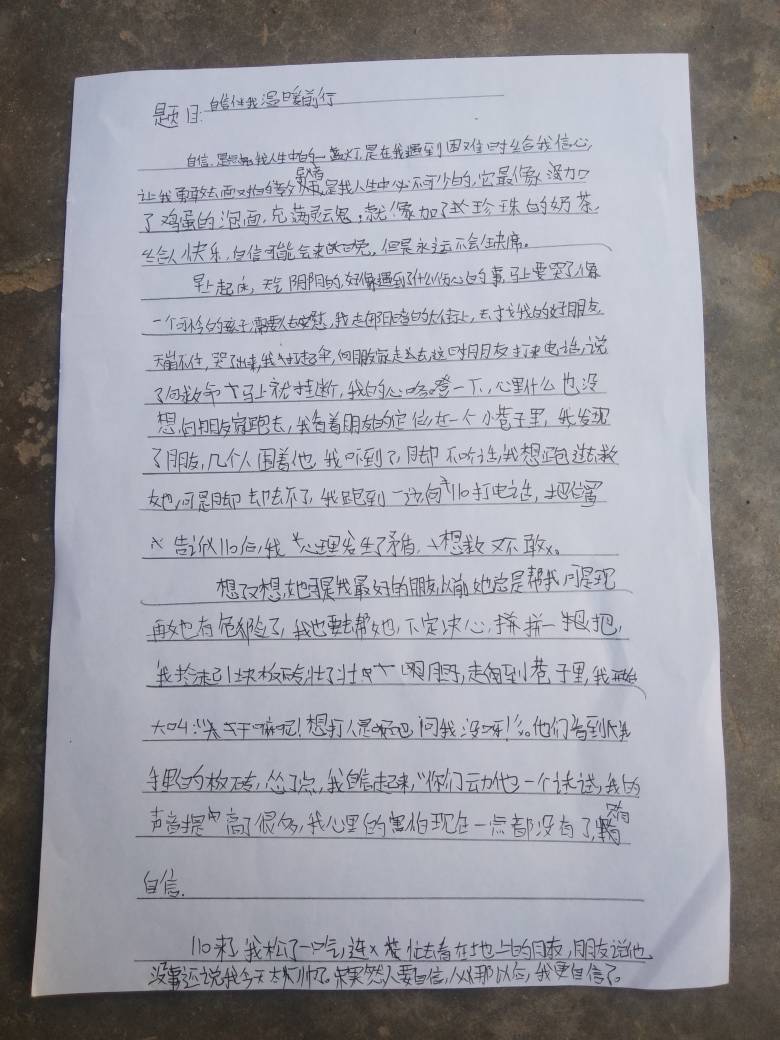 题目:自信伴我温暖前行
自信,是我人生中的一盏灯,是在我遇到困难时给我信心,
让我勇敢去面对的是我人生中必不可少的,它最像添加
了鸡蛋的泡面,充满灵魂,就像加了珍珠的奶茶,
给人快乐,自信可能会来的晚,但是永远不会缺席。
早上起床,天气阴阴的,好像遇到了什么伤心的事,马上要哭了,像
一个可怜的孩子需要人去安慰,我走在阴暗的大街上,去找我的好朋友,
天崩不住,哭了出来,我打起伞,向朋友家走去,这时朋友打来电话,说
了句救命马上就挂断,我的心咯噔一下,心里什么也没
想,向朋友家跑去,我看着朋友的定位,在一个小巷子里,我发现
了朋友,几个人围着他,我吓到了,脚却不听话,我想跑进去救
她,可是脚却去不了,我跑到一边向110打电话,把位置
告诉110后,我心理发生了矛盾,想救又不敢。
想了又想,她可是我最好的朋友,以前她总是帮我,可是现
在她有危险了,我也要去帮她,下定决心,拼一把,
我捡起1块板砖,壮了壮胆子,走向到小巷子里,我开始
大叫:"干嘛呢!想打人是吧,问我没呀!"他们看到我
手里的板砖,怂了点,我自信起来,"你们动他一个试试,我的
声音提高了很多,我心里的害怕现在一点都没有了,只有
自信.
110来了,我松了一口气,连忙去看在地上的朋友,朋友说他
没事,还说我今天太帅了。果然人要自信,从那以后,我更自信了。